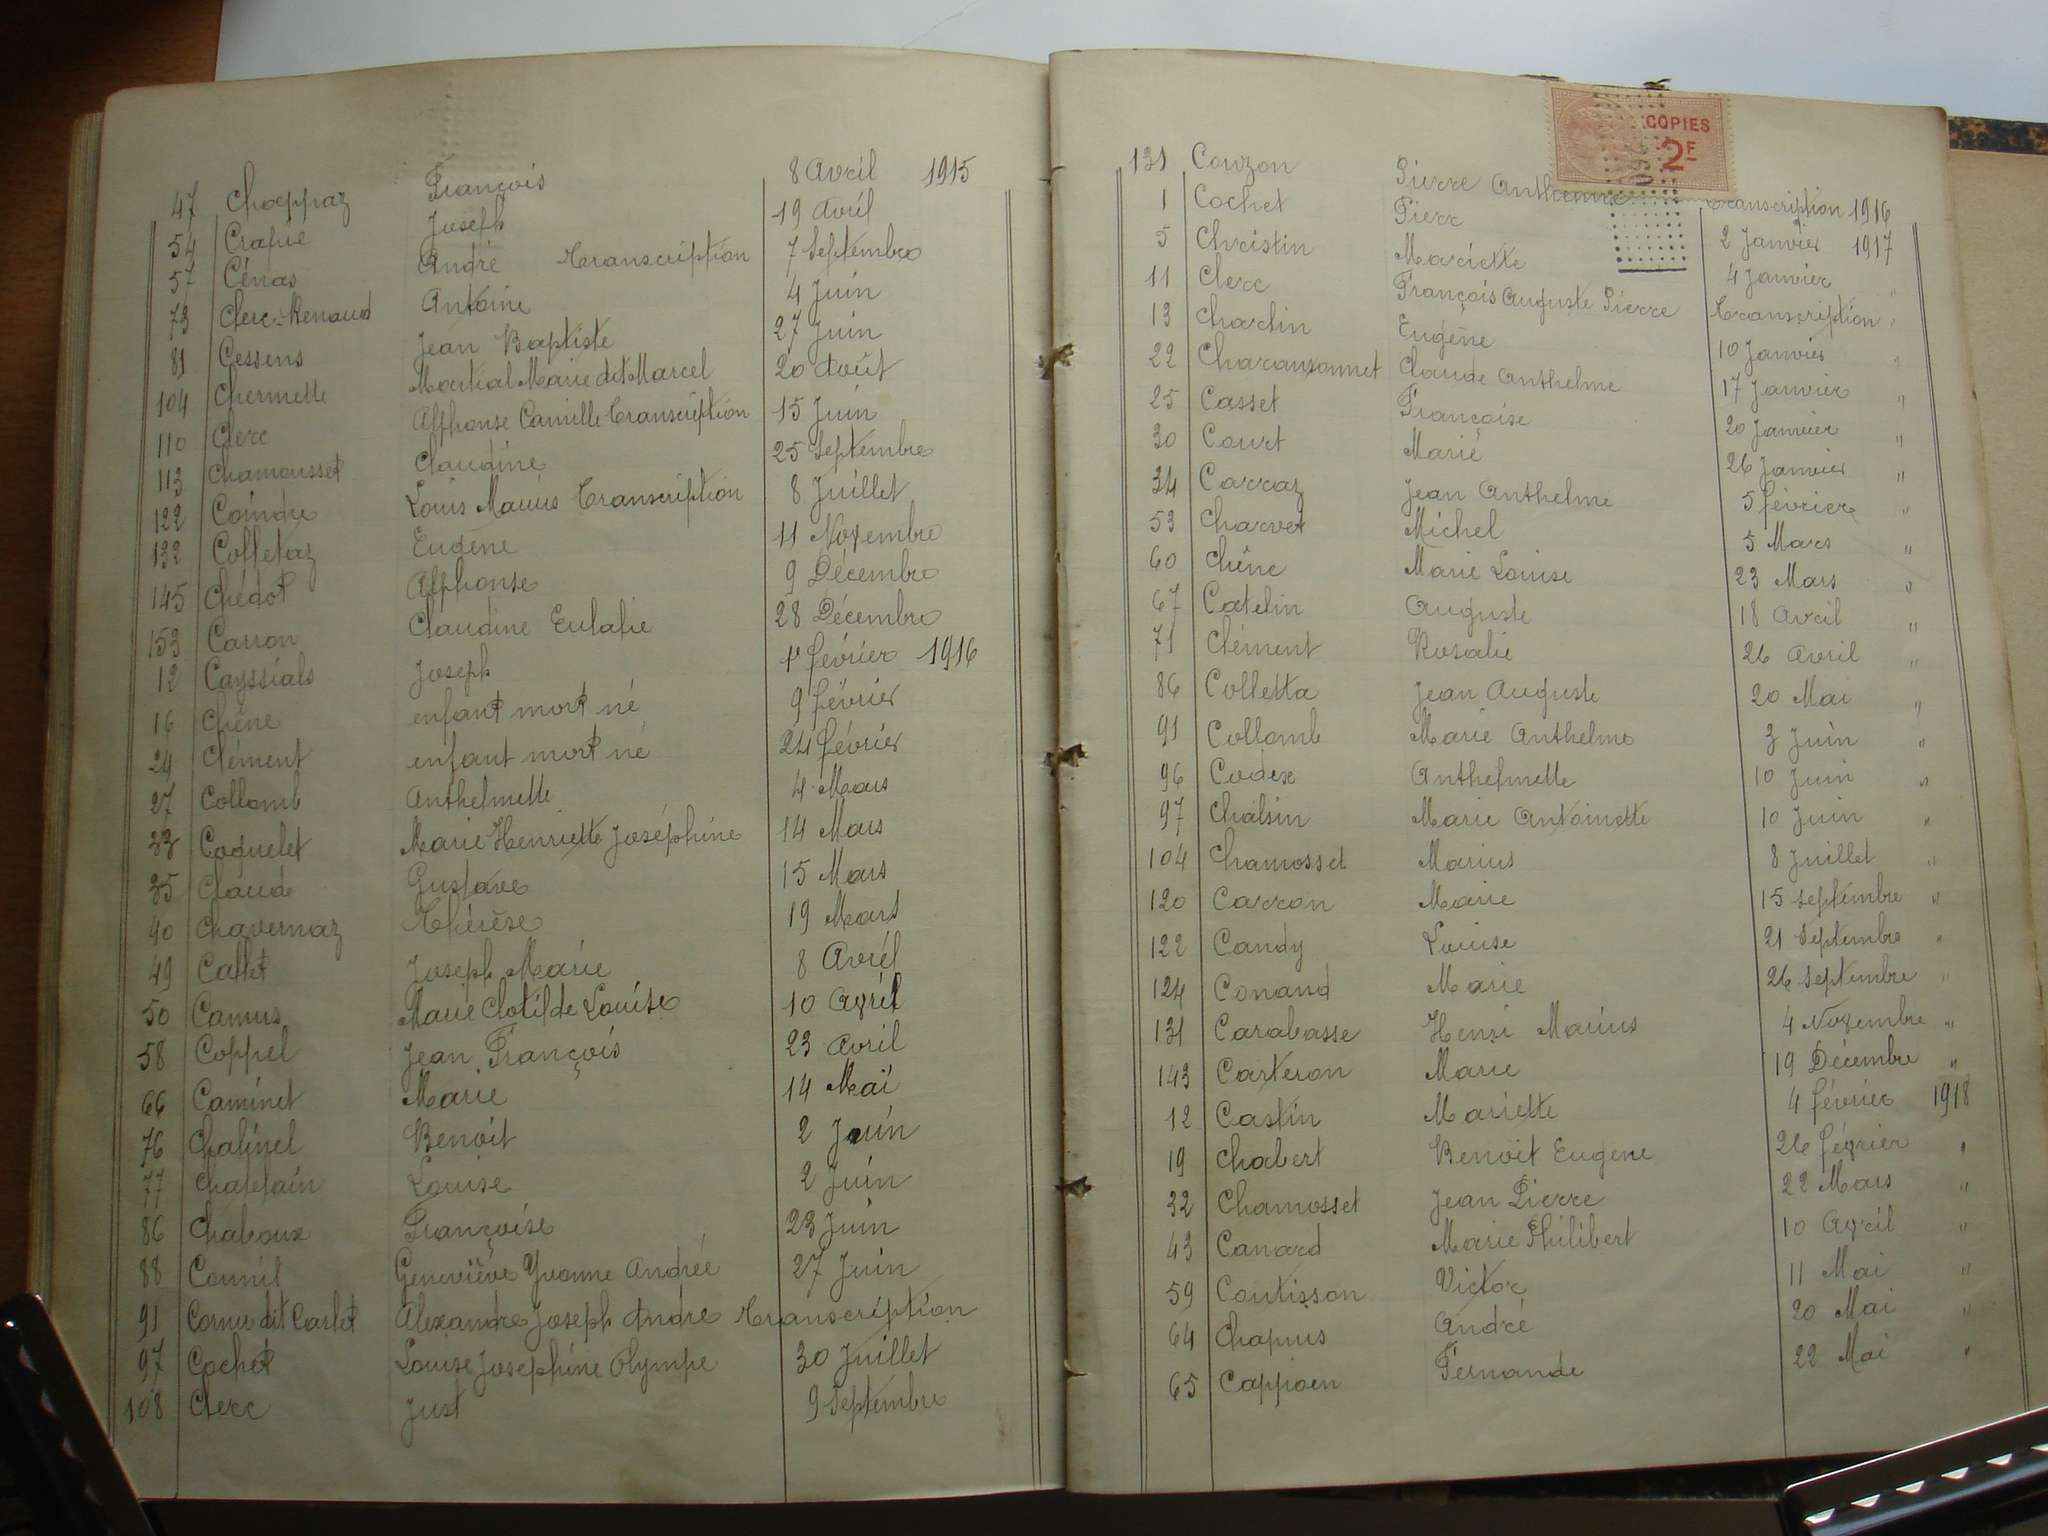 47 Choeppaz François 8 Avril 1915
54 Crapie Joseph 19 Avril
57 Cénas André Transcription 7 Septembre
73 Clerc-Renaud Antoine 4 Juin
81 Cessens Jean Baptiste 27 Juin
104 Chermette Martial Marie dit Marcel 20 Août
110 Clerc Alphonse Camille Transcription 15 Juin
113 Chamousset Claudine 25 Septembre
122 Coindre Louis Marius Transcription 8 Juillet
132 Colletaz Eugène 11 Novembre
145 Chédot Alphonse 9 Décembre
153 Carron Claudine Eulalie 28 Décembre
12 Cayssials Joseph 1er Février 1916
16 Chêne enfant mort né 9 Février
24 Clément enfant mort né 24 Février
27 Collomb Anthelmette 4 Mars
33 Coquelet Marie Henriette Joséphine 14 Mars
35 Claude Gustave 15 Mars
40 Chavernaz Thérèse 19 Mars
49 Callet Joseph Marie 8 Avril
50 Camus Marie Clotilde Louise 10 Avril
58 Coppel Jean François 23 Avril
66 Caminet Marie 14 Mai
76 Chalinel Benoit 2 Juin
77 Chaplain Louise 2 Juin
86 Chaboux Françoise 23 Juin
88 Connil Geneviève Yvonne Andrée 27 Juin
91 Cornu dit Carlet Alexandre Joseph André Transcription
97 Cochet Louise Joséphine Olympe 30 Juillet
108 Clerc Just 9 Septembre
COPIES
2F
131 Couzon Pierre Anthelme Transcription 1916
1 Cochet Pierre 2 Janvier 1917
5 Christin Mariette 4 Janvier "
11 Clerc François Auguste Pierre Transcription "
13 Chardin Eugène 10 Janvier "
22 Charansonnet Claude Anthelme 17 Janvier "
25 Casset Françoise 20 Janvier "
30 Court Marie 26 Janvier "
34 Carraz Jean Anthelme 5 Février "
53 Charvet Michel 5 Mars "
60 Chêne Marie Louise 23 Mars "
67 Catelin Auguste 18 Avril "
71 Clément Rosalie 26 Avril "
86 Colletta Jean Auguste 20 Mai "
91 Collomb Marie Anthelme 3 Juin "
96 Codex Anthelmette 10 Juin "
97 Chalsin Marie Antoinette 10 Juin "
104 Chamosset Marius 8 Juillet "
120 Carron Marie 15 Septembre "
122 Candy Louise 21 Septembre "
124 Conand Marie 26 Septembre "
131 Carabasse Henri Marius 4 Novembre "
143 Carteron Marie 19 Décembre "
12 Castin Mariette 4 Février 1918
19 Chabert Benoit Eugène 26 Février "
32 Chamosset Jean Pierre 22 Mars "
43 Canard Marie Philibert 10 Avril "
59 Coutisson Victor 11 Mai "
64 Chapuis André 20 Mai "
65 Cappioen Fernande 22 Mai "